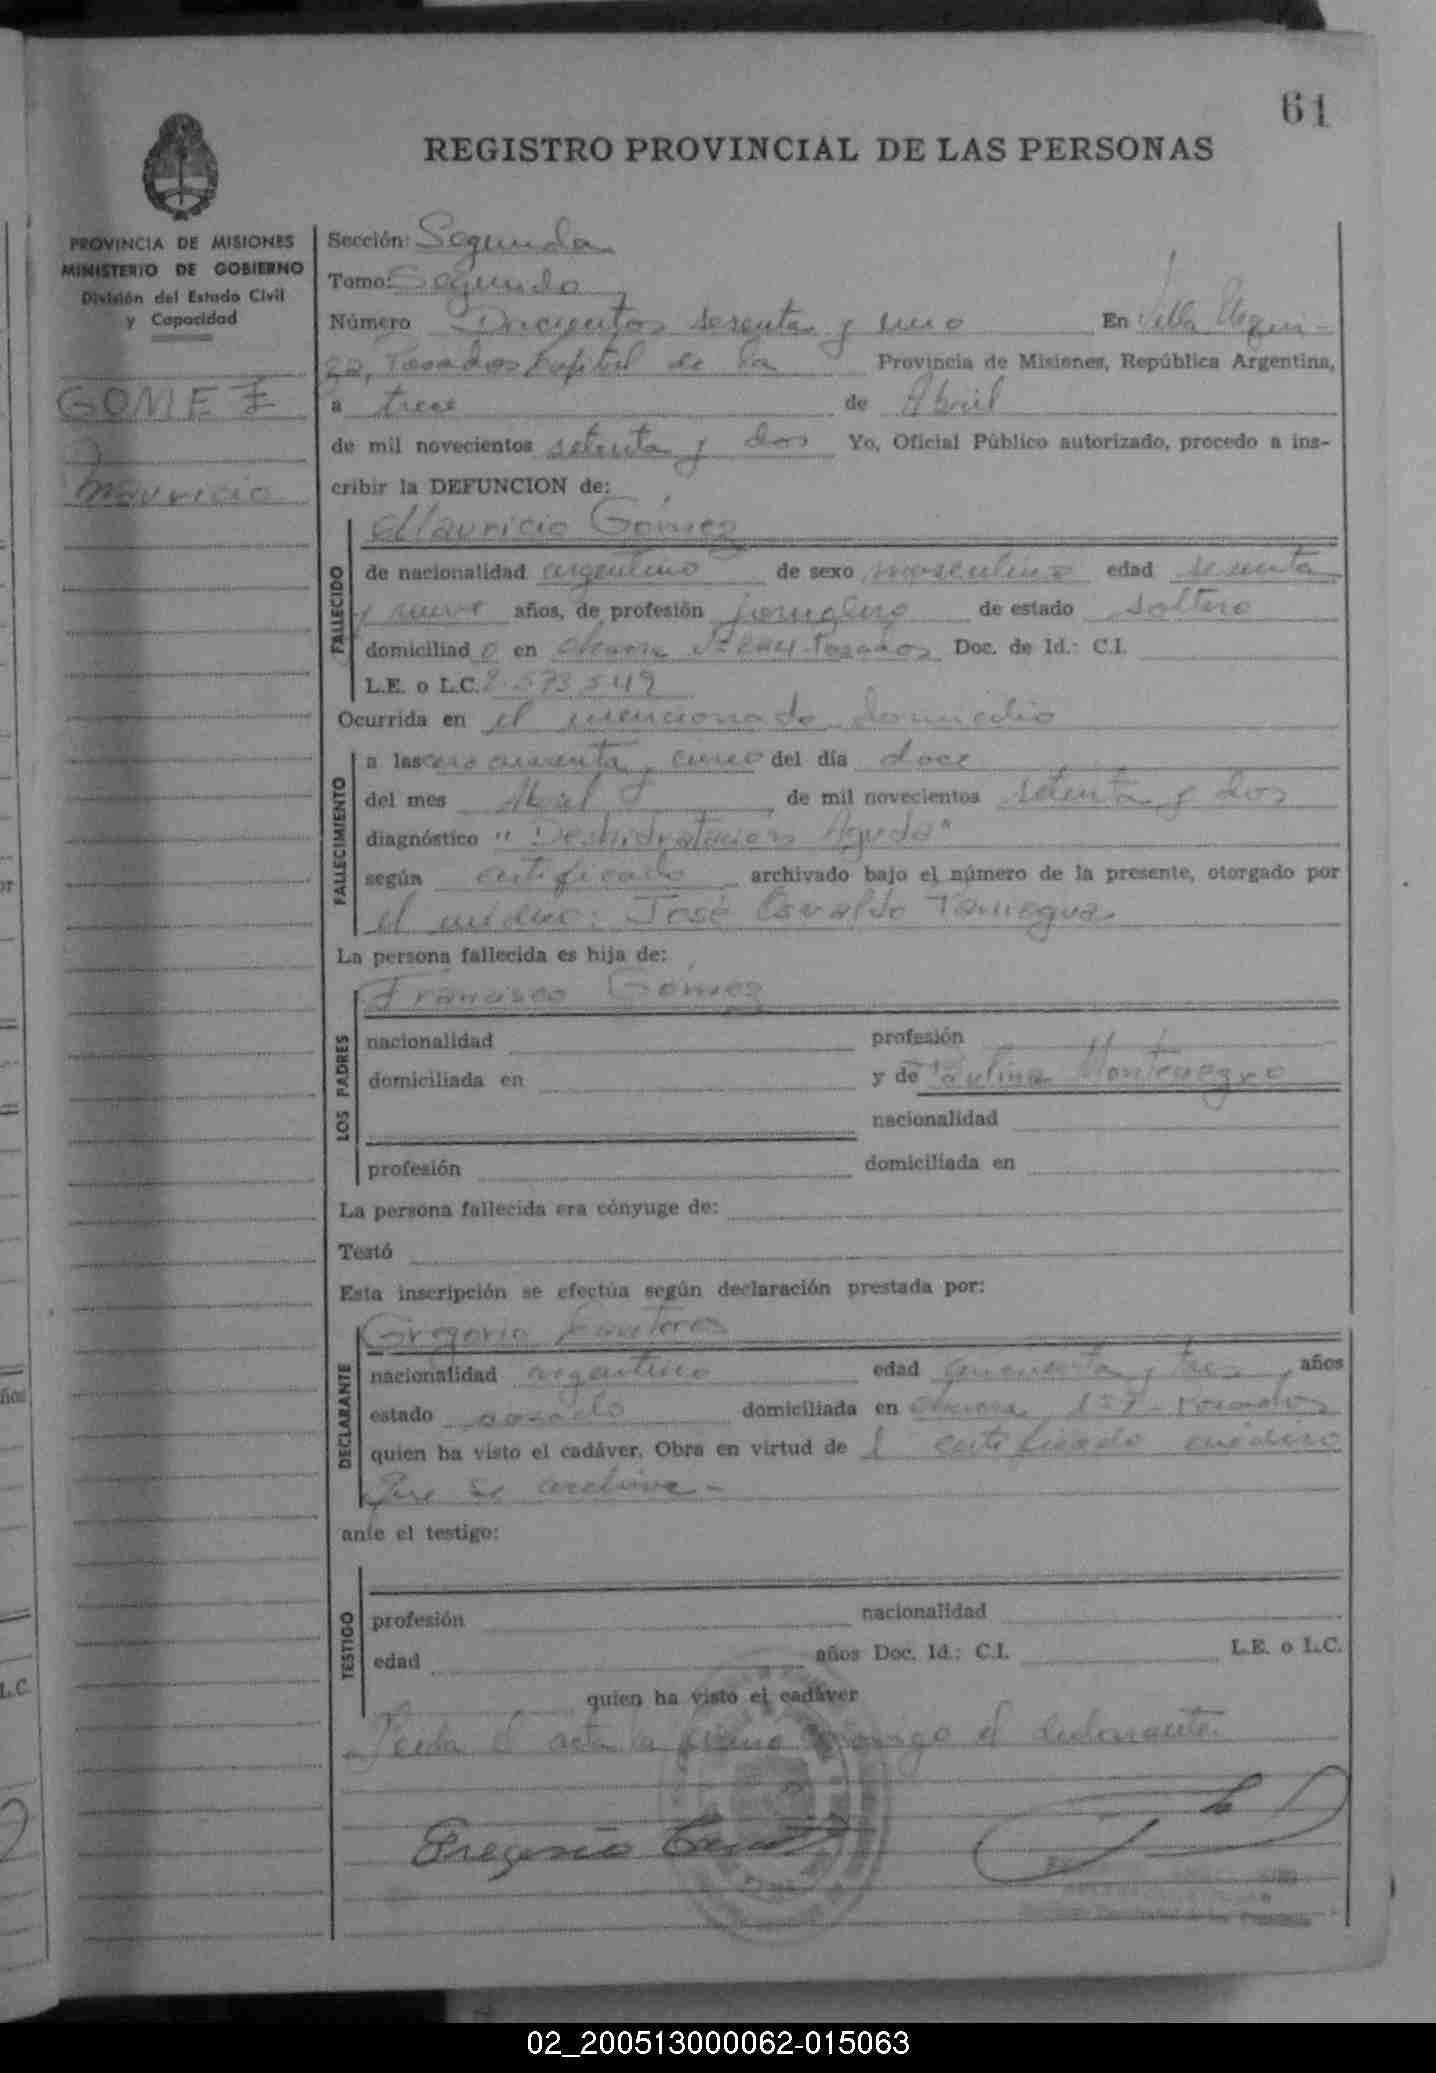 61
REGISTRO PROVINCIAL DE LAS PERSONAS
PROVINCIA DE MISIONES
MINISTERIO DE GOBIERNO
División del Estado Civil
y Capacidad
GOMEZ
Mauricio
Sección: Segunda
Tomo: Segundo
Número Doscientos sesenta y uno En Villa Urqui-
za, Posadas Capital de la Provincia de Misiones, República Argentina,
a trece de Abril
de mil novecientos setenta y dos Yo, Oficial Público autorizado, procedo a ins-
cribir la DEFUNCION de:
FALLECIDO
Mauricio Gómez
de nacionalidad argentino de sexo masculino edad sesenta
y nueve años, de profesión jornalero de estado soltero
domiciliado en Chacra Posadas Doc. de Id.: C.I.
L.E. o L.C.
Ocurrida en el mencionado domicilio
FALLECIMIENTO
a las cero cuarenta y cinco del día doce
del mes Abril de mil novecientos setenta y dos
diagnóstico "Deshidratación Aguda"
según certificado archivado bajo el número de la presente, otorgado por
el médico: José Osvaldo
La persona fallecida es hija de:
LOS PADRES
Francisco Gómez
nacionalidad profesión
domiciliada en y de Paulina Montenegro
nacionalidad
profesión domiciliada en
La persona fallecida era cónyuge de:
Testó
Esta inscripción se efectúa según declaración prestada por:
DECLARANTE
Gregorio
nacionalidad argentino edad cincuenta y tres años
estado casado domiciliada en Chacra 157 - Posadas
quien ha visto el cadáver. Obra en virtud de l certificado médico
Que se archiva -
ante el testigo:
TESTIGO
profesión nacionalidad
edad años Doc. Id.: C.I. L.E. o L.C.
quien ha visto el cadáver
Leida el acta la firma conmigo el declarante.
Gregorio
02_200513000062-015063